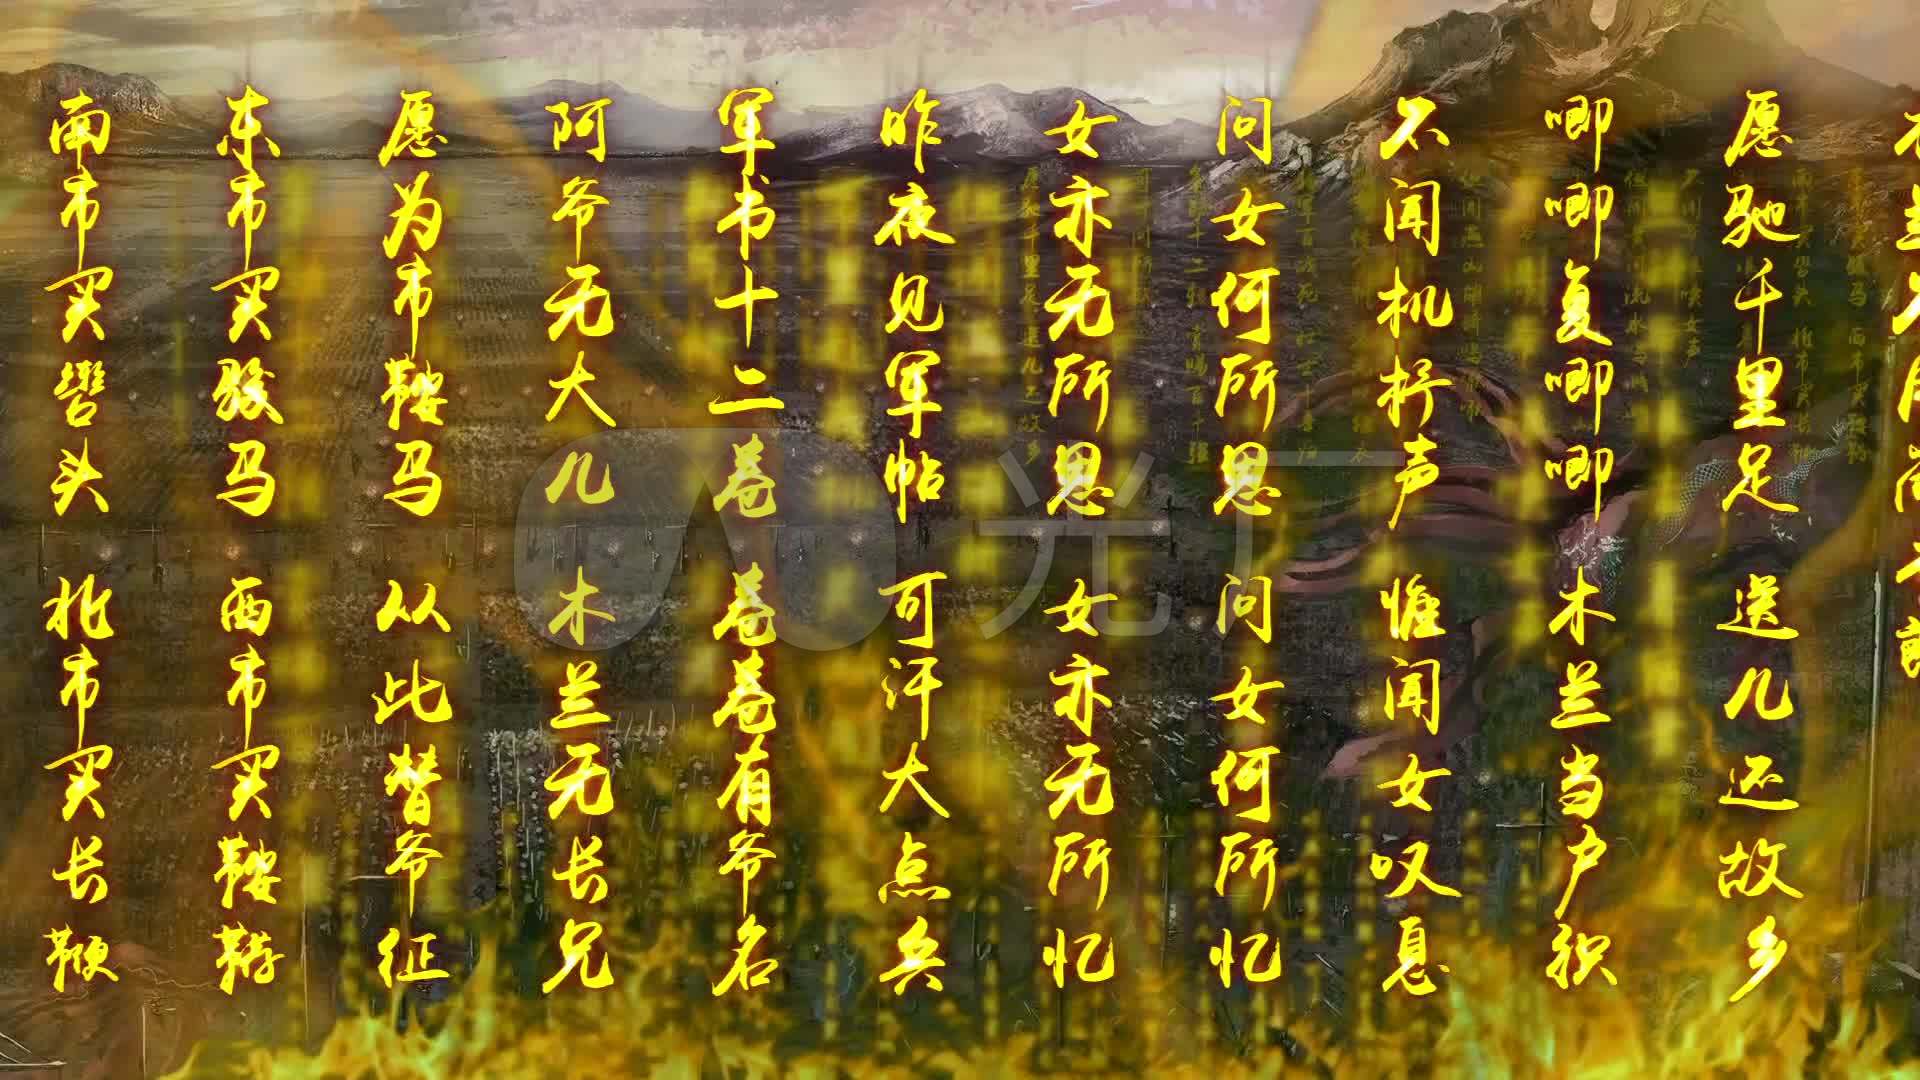 愿驰千里足 送儿还故乡
唧唧复唧唧 木兰当户织
不闻机杼声 惟闻女叹息
问女何所思 问女何所忆
女亦无所思 女亦无所忆
昨夜见军帖 可汗大点兵
军书十二卷 卷卷有爷名
阿爷无大儿 木兰无长兄
愿为市鞍马 从此替爷征
东市买骏马 西市买鞍鞯
南市买辔头 北市买长鞭
光厂